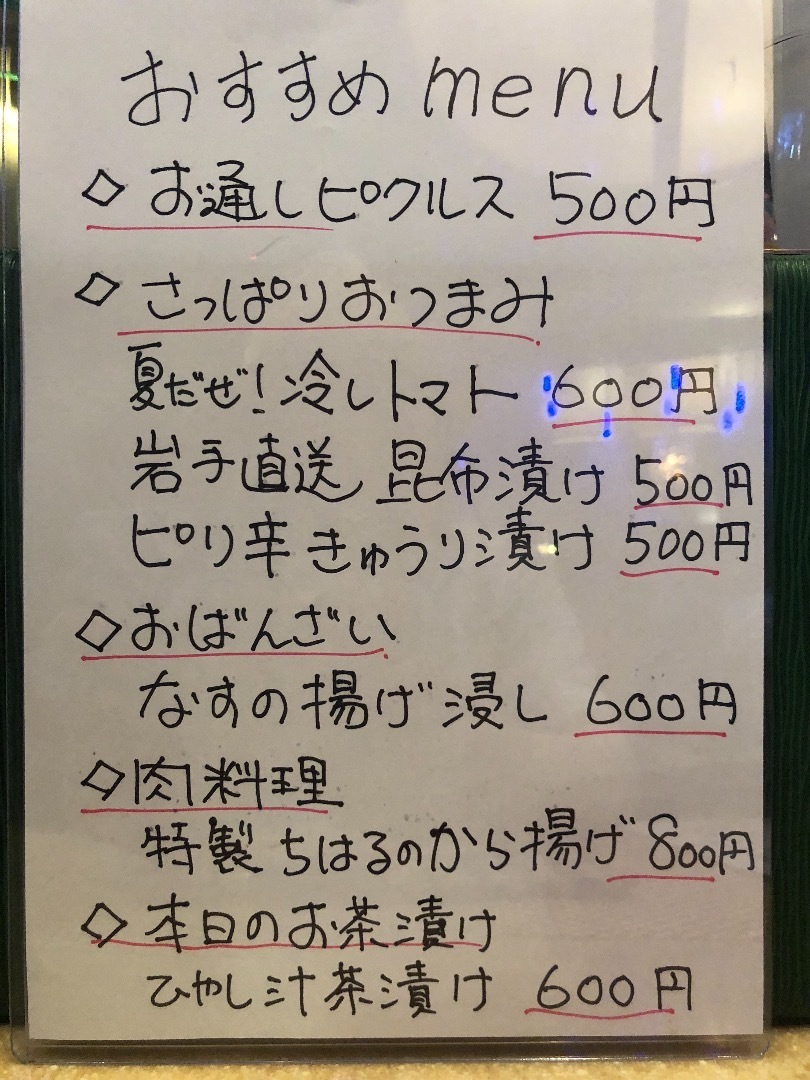 おすすめ menu
◇ お通しピクルス 500円
◇ さっぱりおつまみ
夏だぜ!冷しトマト 600円
岩手直送 昆布漬け 500円
ピリ辛きゅうり漬け 500円
◇おばんざい
なすの揚げ浸し 600円
◇肉料理
特製ちはるのから揚げ 800円
◇本日のお茶漬け
ひやし汁茶漬け 600円